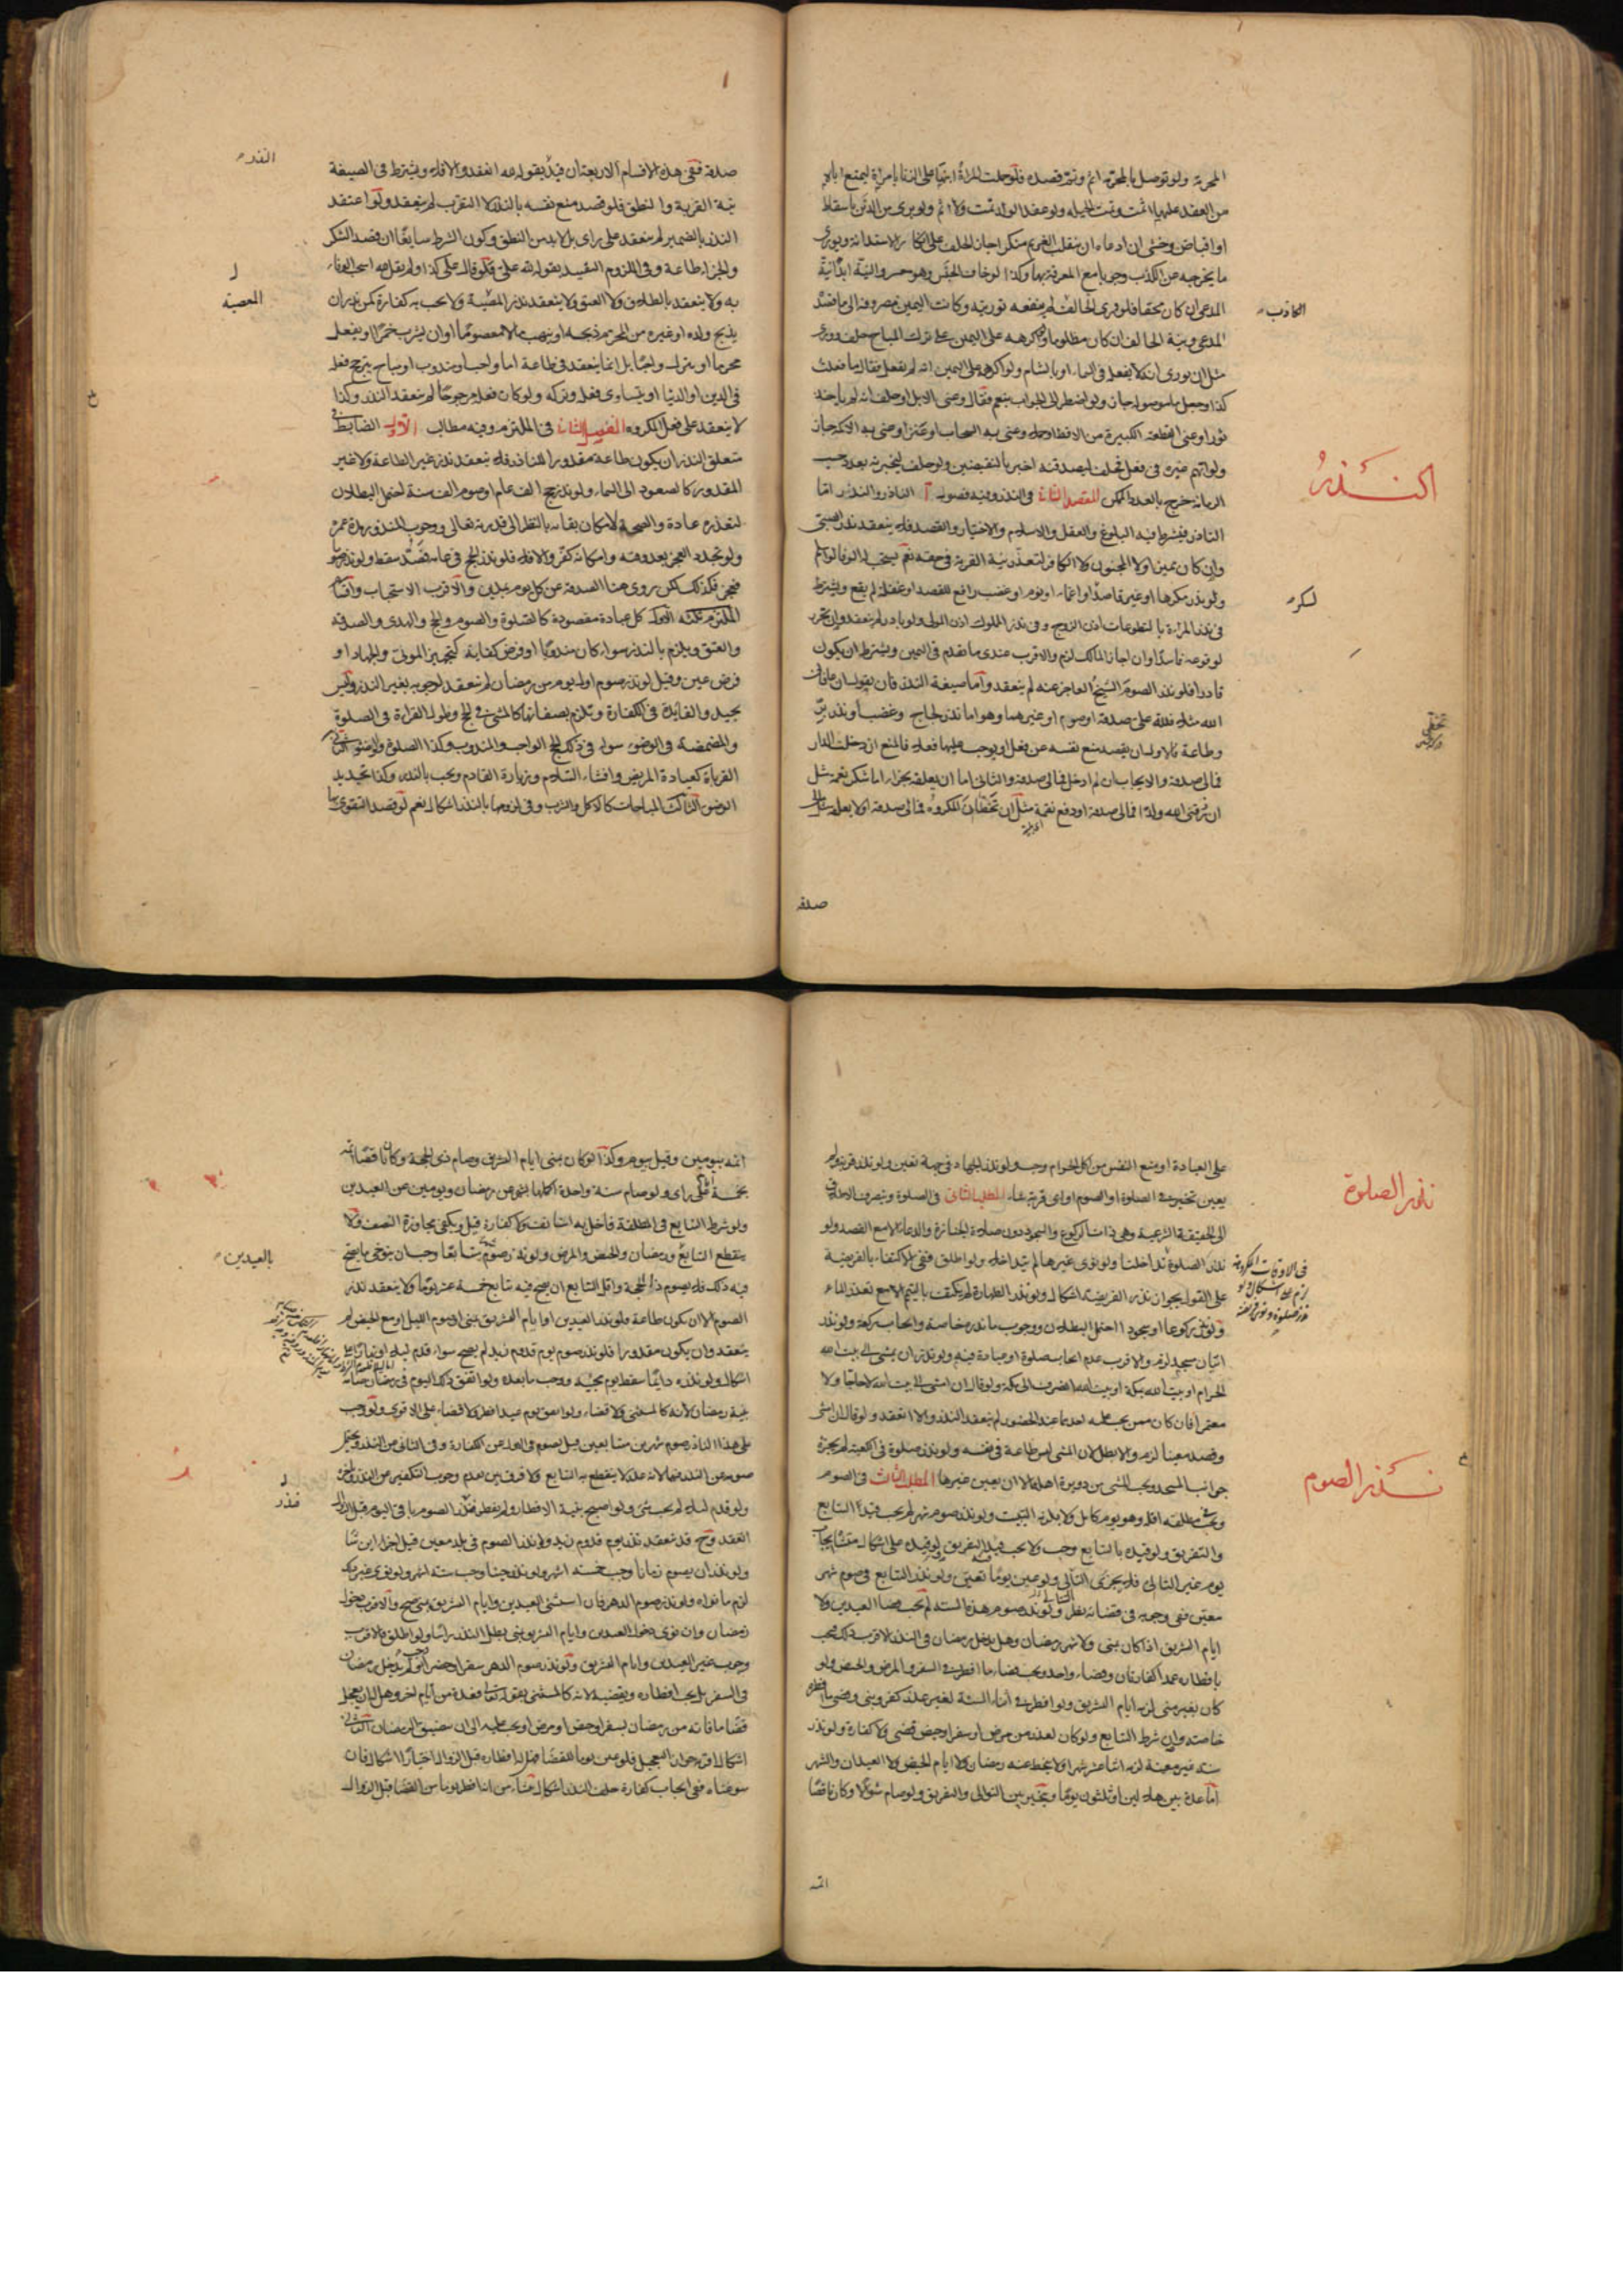 المحرمة ولو توصل بالمحرمة اثم وتم قصده فلو حلت المراة ابنها على الزنا بامراة ليمنع اباه
من العقد عليها اثمت وتمت الحيلة ولو عقد الولد تمت ولا اثم ولو برئ من الدين باسقاط
او اقباض وخشى ان ادعاه ان ينقلب الغريم منكرا جاز الحلف على انكار الاستدانة ويورى
ما يخرجه عن الكذب وجوبا مع المعرفة بها وكذا لو خاف الحبس وهو معسر والنية ابدا نية
المدعى ان كان محقا فلو ورى الحالف لم ينفعه توريته وكانت اليمين مصروفة الى ما قصده
المدعى ونية الحالف ان كان مظلوما ولو اكرهه على اليمين على ترك المباح حلف وورى
مثل ان يورى انه لا يفعله فى السماء او بالشام ولو اكره على اليمين انه لم يفعل فقال ما فعلت
كذا وجعل ما موصولة جاز ولو اضطر الى الجواب بنعم فقال وعنى الابل او حلف انه لم ياخذ
ثورا وعنى القطعة الكبيرة من الاقط او جملا وعنى به السحاب او عنزا وعنى به الاكمة جاز
ولو اتهم غيره فى فعل فحلف ليصدقنه اخبر بالنقيضين ولو حلف ليخبرنه بعدد حب
الرمانة خرج بالعدد الممكن المقصد الثانى فى النذر وفيه فصول آ الناذر والنذر اما
الناذر فيشترط فيه البلوغ والعقل والاسلام والاختيار والقصد فلا ينعقد نذر الصبى
وان كان مميزا ولا المجنون ولا الكافر لتعذر نية القربة فى حقه نعم يستحب له الوفا لو اسلم
ولو نذر مكرها او غير قاصد او اغماء او نوم او غضب رافع للقصد او غفلة لم يقع ويشترط
فى نذر المراة بالتطوعات اذن الزوج وفى نذر المملوك اذن المولى ولو بادر لم ينعقد وان تحرر
لوقوعه فاسدا وان اجاز المالك لزم والاقرب عندى ما تقدم فى اليمين ويشترط ان يكون
قادرا فلو نذر الصوم الشيخ العاجز عنه لم ينعقد واما صيغة النذر فان يقول ان عافانى
الله مثلا فلله على صدقة او صوم او غيرهما وهو اما نذر لجاج وغضب او نذر بر
وطاعة فالاول ان يقصد منع نفسه عن فعل او يوجب عليها فعلا فالمنع ان دخلت الدار
فمالى صدقة والايجاب ان لم ادخل فمالى صدقة والثانى اما ان يعلقه بجزاء اما شكر نعمة مثل
ان رزقنى الله ولدا فمالى صدقة او دفع نقمة مثل ان تخطانى المكروه فمالى صدقة او لا يعلقه مثل مالى
صدقة
الكاذب
النذر
لسكر
صدقة ففى هذه الاقسام الاربعة ان قيد بقوله لله انعقد والا فلا ويشترط فى الصيغة
نية القربة والنطق فلو قصد منع نفسه بالنذر لا التقرب لم ينعقد ولو اعتقد
النذر بالضمير لم ينعقد على راى بل لا بد من النطق وكون الشرط سايغا ان قصد الشكر
والجزاء طاعة وفى اللزوم التقييد بقوله لله على فلو قال على كذا ولم يقل لله استحب الوفاء
به ولا ينعقد بالطلاق ولا العتق ولا ينعقد نذر المعصية ولا يجب به كفارة كمن نذر ان
يذبح ولده او غيره من المحرم ذبحه او ينهب مالا معصوما او ان يشرب خمرا او يفعل
محرما او يترك واجبا بل انما ينعقد فى طاعة اما واجب او مندوب او مباح يترجح فعله
فى الدين او الدنيا او يتساوى فعله وتركه ولو كان فعله مرجوحا لم ينعقد النذر وكذا
لا ينعقد على فعل المكروه الفصل الثانى فى الملتزم وفيه مطالب الاول الضابط فى
متعلق النذر ان يكون طاعة مقدورا للناذر فلا ينعقد نذر غير الطاعة ولا غير
المقدور كالصعود الى السماء ولو نذر حج الف عام او صوم الف سنة احتمل البطلان
لتعذره عادة والصحة لامكان بقائه بالنظر الى قدرته تعالى ووجوب المنذور مدة عمره
ولو تجدد العجز بعد وقته وامكانه كفر والا فلا فلو نذر الحج فى عامه فصد سقط ولو نذر صوما
فعجز فكذلك لكن روى هنا الصدقة عن كل يوم بمدين والاقرب الاستحباب واقسام
الملتزم ثلثة الاول كل عبادة مقصودة كالصلوة والصوم والحج والهدى والصدقة
والعتق ويلزم بالنذر سواء كان مندوبا او فرض كفاية كتجهيز الموتى والجهاد او
فرض عين وقيل لو نذر صوم اول يوم من رمضان لم ينعقد لوجوبه بغير النذر وليس
بجيد والفايدة فى الكفارة ويلزم بصفاتها كالمشى فى الحج وطول القراءة فى الصلوة
والمضمضة فى الوضوء سواء فى ذلك الحج الواجب والمندوب وكذا الصلوة والوضوء الثانى
القربات كعيادة المريض وافشاء السلام وزيارة القادم ويجب بالنذر وكذا تجديد
الوضوء الثالث المباحات كالاكل والشرب وفى لزومها بالنذر اشكال نعم لو قصد التقوى بها
المعصية
على العبادة او منع النفس من اكل الحرام وجب ولو نذر الجهاد فى جهة تعين ولو نذر قربة ولم
يعين تخير فى الصلوة او الصوم او اى قربة شاء المطلب الثانى فى الصلوة وينصرف الاطلاق
الى الحقيقة الشرعية وهى ذات الركوع والسجود دون صلوة الجنازة والدعاء الا مع القصد ولو
نذر الصلوة تداخلتا ولو نوى غيرها لم يتداخلا ولو اطلق ففى الاكتفاء بالفريضة
على القول بجواز نذر الفريضة اشكال ولو نذر الطهارة لم يكتف بالتيمم الا مع تعذر الماء
ولو نذر ركوعا او سجودا احتمل البطلان ووجوب ما نذره خاصة وايجاب ركعة ولو نذر
اتيان مسجد لزم والاقرب عدم ايجاب صلوة او عبادة فيه ولو نذر ان يمشى الى بيت الله
الحرام او بيت الله بمكة او بيت الله انصرف الى مكة ولو قال ان امشى الى بيت الله لا حاجا ولا
معتمرا فان كان ممن يجب عليه احدهما عند الحضور لم ينعقد النذر والا انعقد ولو قال ان امشى
وقصد معينا لزم والا بطل لان المشى ليس طاعة فى نفسه ولو نذر صلوة فى الكعبة لم يجزه
جوانب المسجد ويجب المشى من دويرة اهله الا ان يعين غيرها المطلب الثالث فى الصوم
ويجب فى مطلقه اقله وهو يوم كامل ولا بد له التبييت ولو نذر صوم شهر لم يجب قيدا التتابع
والتفريق ولو قيده بالتتابع وجب ولا يجب قيد التفريق لو قيده على اشكال
يوم غير التالى فلا يجزى التالى ولو عين يوما تعين ولو نذر التتابع فى صوم شهر
معين ففى وجوبه فى قضائه نظر ولو نذر صوم هذه السنة لم يجب قضاء العيدين ولا
ايام التشريق اذا كان بمنى ولا شهر رمضان وهل يدخل رمضان فى النذر الاقرب ذلك فيجب
بافطاره عمدا كفارتان وقضاء واحد ويجب قضاء ما افطره فى السفر والمرض والحيض ولو
كان بغير منى لزمه ايام التشريق ولو افطر فى اثناء السنة لغير عذر كفر وبنى وقضى ما افطره
خاصة وان شرط التتابع ولو كان لعذر من مرض او سفر او حيض قضى ولا كفارة ولو نذر
سنة غير معينة لزمه اثنا عشر شهرا ولا ينحط عنه رمضان ولا ايام الحيض ولا العيدان والشهر
اما عدة بين هلالين او ثلثون يوما ويتخير بين التوالى والتفريق ولو صام شوالا وكان ناقصا
اتمه
نذر الصلوة
فى الاوقات المكروهة
نذر الصوم
اتمه بيومين وقيل بيوم وكذا لو كان بمنى ايام التشريق وصام ذى الحجة وكان ناقصا اتمه
بخمسة على راى ولو صام سنة واحدة اكملها بشهر عن رمضان ويومين عن العيدين
ولو شرط التتابع فى المطلقة فاخل به استانف ولا كفارة قيل ويكفى مجاوزة النصف ولا
ينقطع التتابع برمضان والحيض والمرض ولو نذر صوم شهر متتابعا وجب ان يتوخى ما يصح
فيه ذلك فلا يصوم ذا الحجة واقل التتابع ان يصح فيه تتابع خمسة عشر يوما ولا ينعقد نذر
الصوم الا ان يكون طاعة فلو نذر العيدين او ايام التشريق بمنى او صوم الليل او مع الحيض لم
ينعقد وان يكون مقدورا فلو نذر صوم يوم قدوم زيد لم يصح سواء قدم ليلا او نهارا على
اشكال ولو نذره دايما سقط يوم مجيئه ووجب ما بعده ولو اتفق ذلك اليوم فى رمضان صامه
بنية رمضان لانه كالمستثنى ولا قضاء ولو اتفق يوم عيد افطر ولا قضاء على الاقوى ولو وجب
على هذا الناذر صوم شهرين متتابعين قيل يصوم فى الاول عن الكفارة وفى الثانى عن النذر ويحتمل
صومه عن النذر فيهما لانه عذر لا ينقطع به التتابع ولا فرق بين تقدم وجوب التكفير عن النذر وتاخره
ولو قدم ليلا لم يجب شئ ولو اصبح بنية الافطار ولم يفطر فنذر الصوم باقى اليوم قبل الزوال
انعقد وح قد ينعقد نذر يوم قدوم زيد ولو نذر الصوم فى بلد معين قيل اجزا اين شاء
ولو نذر ان يصوم زمانا وجب خمسة اشهر ولو نذر حينا وجب ستة اشهر ولو نوى غير ذلك
لزم ما نواه ولو نذر صوم الدهر فان استثنى العيدين وايام التشريق بمنى صح والاقرب دخول
رمضان وان نوى دخول العيدين وايام التشريق بمنى بطل النذر راسا ولو اطلق فالاقرب
وجوب غير العيدين وايام التشريق ولو نذر صوم الدهر سفرا وحضرا وجب ولم يدخل رمضان
فى السفر بل يجب افطاره ويقضيه لانه كالمستثنى بقوله تعالى فعدة من ايام اخر وهل له ان يعجل
قضا ما فاته من رمضان بسفر او حيض او مرض او يجب عليه الى ان يضيق رمضان الثانى
اشكال اقربه جواز التعجيل فلو عين يوما للقضاء فهل له افطاره قبل الزوال اختيارا اشكال فان
سوغناه ففى ايجاب كفارة خلف النذر اشكال ينشأ من انه افطر يوما من القضا قبل الزوال
بالعيدين
فنذر